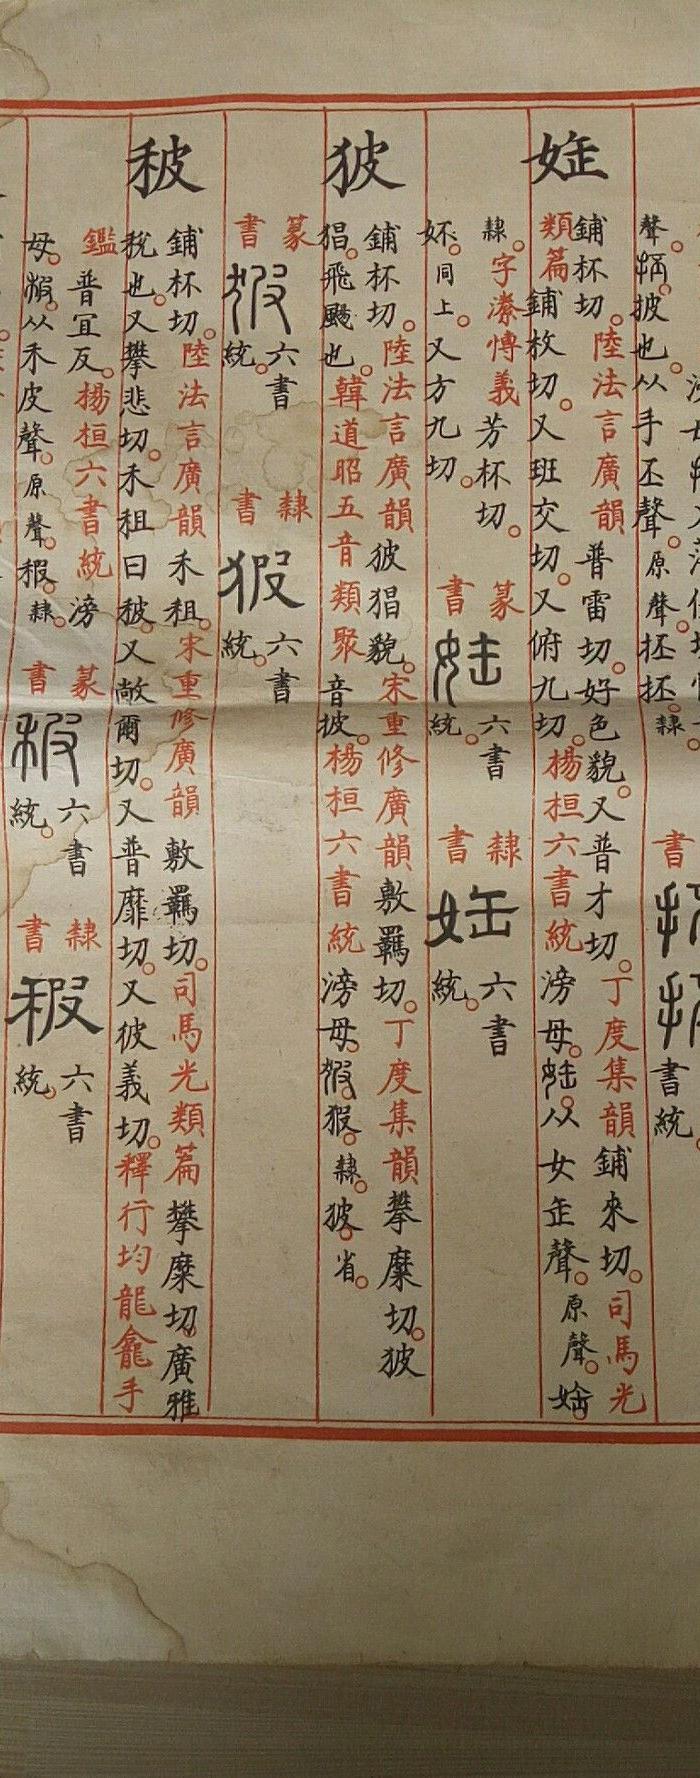 聲披也从手丕聲原聲抷抷隸
書
書統
娝
鋪杯切陸法言廣韻普雷切好色貌又普才切丁度集韻鋪來切司馬光
類篇鋪枚切又班交切又俯九切楊桓六書統滂母从女否聲原聲
隸字潫愽義芳杯切篆書六書統隸書六書統
妚同上又方九切
狓
鋪杯切陸法言廣韻狓猖貌宋重修廣韻敷羈切丁度集韻攀糜切狓
猖飛颺也韓道昭五音類聚音披楊桓六書統滂母隸狓省
篆書六書統隸書六書統
秛
鋪杯切陸法言廣韻禾租宋重修廣韻敷羈切司馬光類篇攀糜切廣雅
稅也又攀悲切禾租曰秛又敞爾切又普靡切又彼義切釋行均龍龕手
鑑普冝反楊桓六書統滂
母从禾皮聲原聲隸
篆書六書統隸書六書統